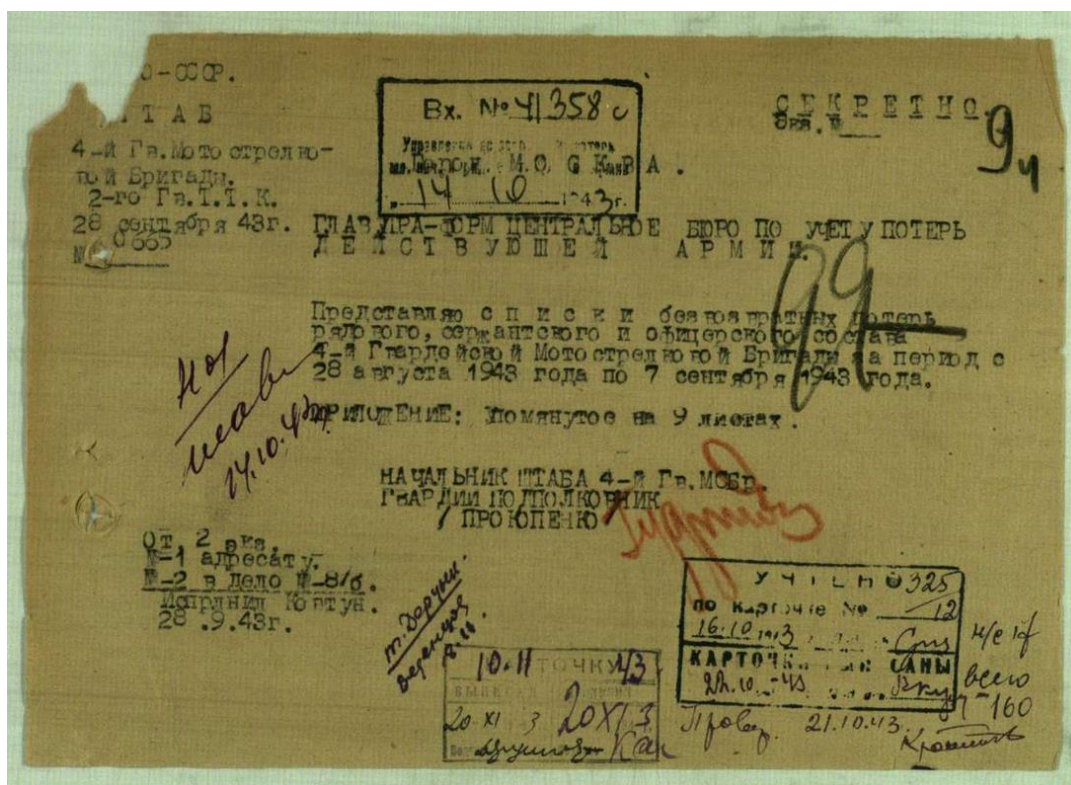 О-СССР.
ТАБ
4-й Гв.Мотострелко-
вой Бригады.
2-го Гв.Т.Т.К.
28 сентября 43г.
№ 0665
Вх. № 41358с
город МОСКВА.
"14" 10 1943г.
СЕКРЕТНО.
Экз. №
94
ГЛАВУПРА-ФОРМ ЦЕНТРАЛЬНОЕ БЮРО ПО УЧЕТУ ПОТЕРЬ
ДЕЙСТВУЮЩЕЙ АРМИИ.
99
Представляю списки безвозвратных потерь
рядового, сержантского и офицерского состава
4-й Гвардейской Мотострелковой Бригады за период с
28 августа 1943 года по 7 сентября 1943 года.
14.10.43
ПРИЛОЖЕНИЕ: Упомянутое на 9 листах.
НАЧАЛЬНИК ШТАБА 4-й Гв.МСБр.
ГВАРДИИ ПОДПОЛКОВНИК
/ПРОКОПЕНКО
От. 2 экз.
№-1 адресату.
№-2 в Дело №-8/б.
Исполнил Ковтун.
28.9.43г.
УЧТЕНО 325
по карточке № 12
16.10 1943
КАРТОЧКИ
22.10.-43
всего
160
Провер. 21.10.43.
10.11 43
20 XI 3
20 XI 3